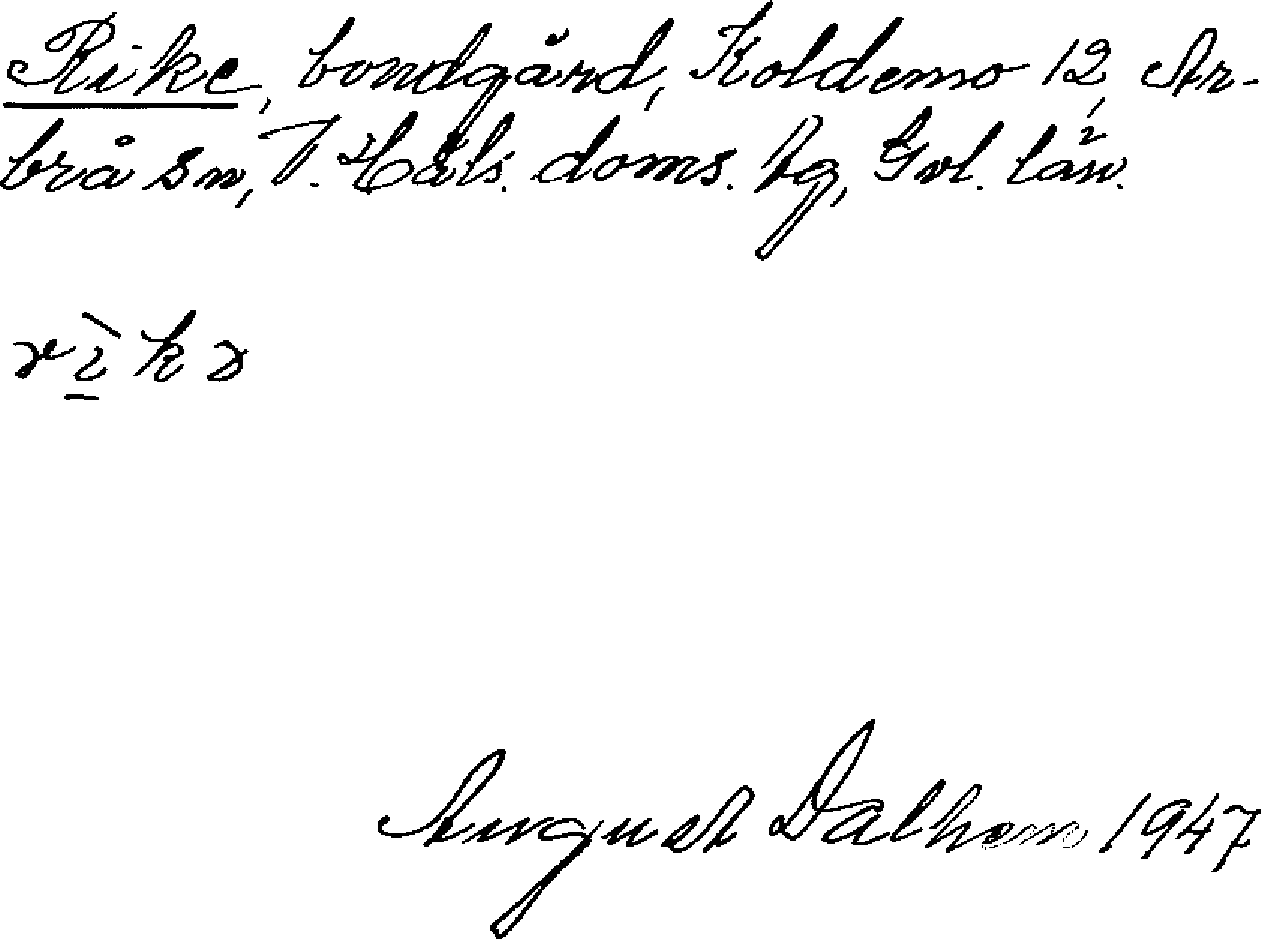 Rike, bondgård, Koldemo 12, Ar-
brå sn, V. Häls. doms. tg, Gvl. län.
rìkə
August Dalhem 1947